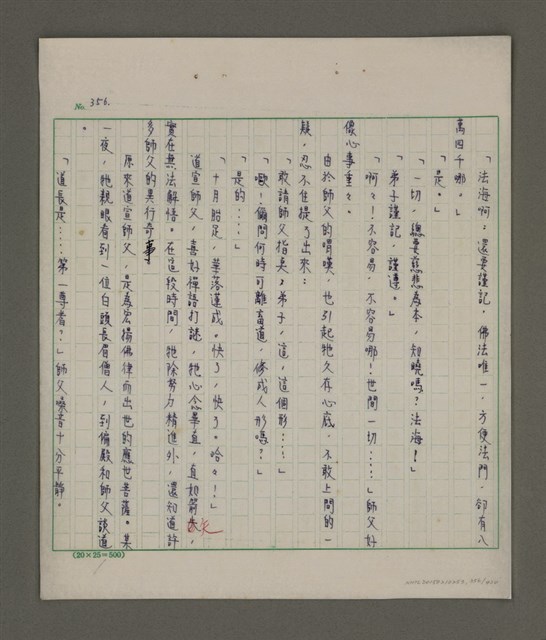 No. 356.
「法海啊：還要謹記，佛法唯一，方便法門，卻有八
萬四千哪。」
「是。」
「一切，總要慈悲為本，知曉嗎？法海！」
「弟子謹記，謹遵。」
「啊々！不容易，不容易哪！世間一切……」師父好
像心事重々。
由於師父的喟嘆，也引起牠久存心底，不敢上問的一
疑，忍不住提了出來：
「敢請師父指奧，弟子，這，這個形……」
「噉！儞問何時可離畜道，修成人形嗎？」
「是的……」
「十月胎足，華落蓮成。快了，快了。哈々！」
道宣師父，喜好禪語打謎，牠心念畢直，直如箭矢，
實在無法解悟。在這段時間，牠除努力精進外，還知道許
多師父的異行奇事
原來道宣師父，是為宏揚佛律而出世的應世菩薩。某
一夜，牠親眼看到一位白頭長眉僧人，到偏殿和師父談道
。
「道長是……第一尊者？」師父嗓音十分平靜。
(20×25=500)